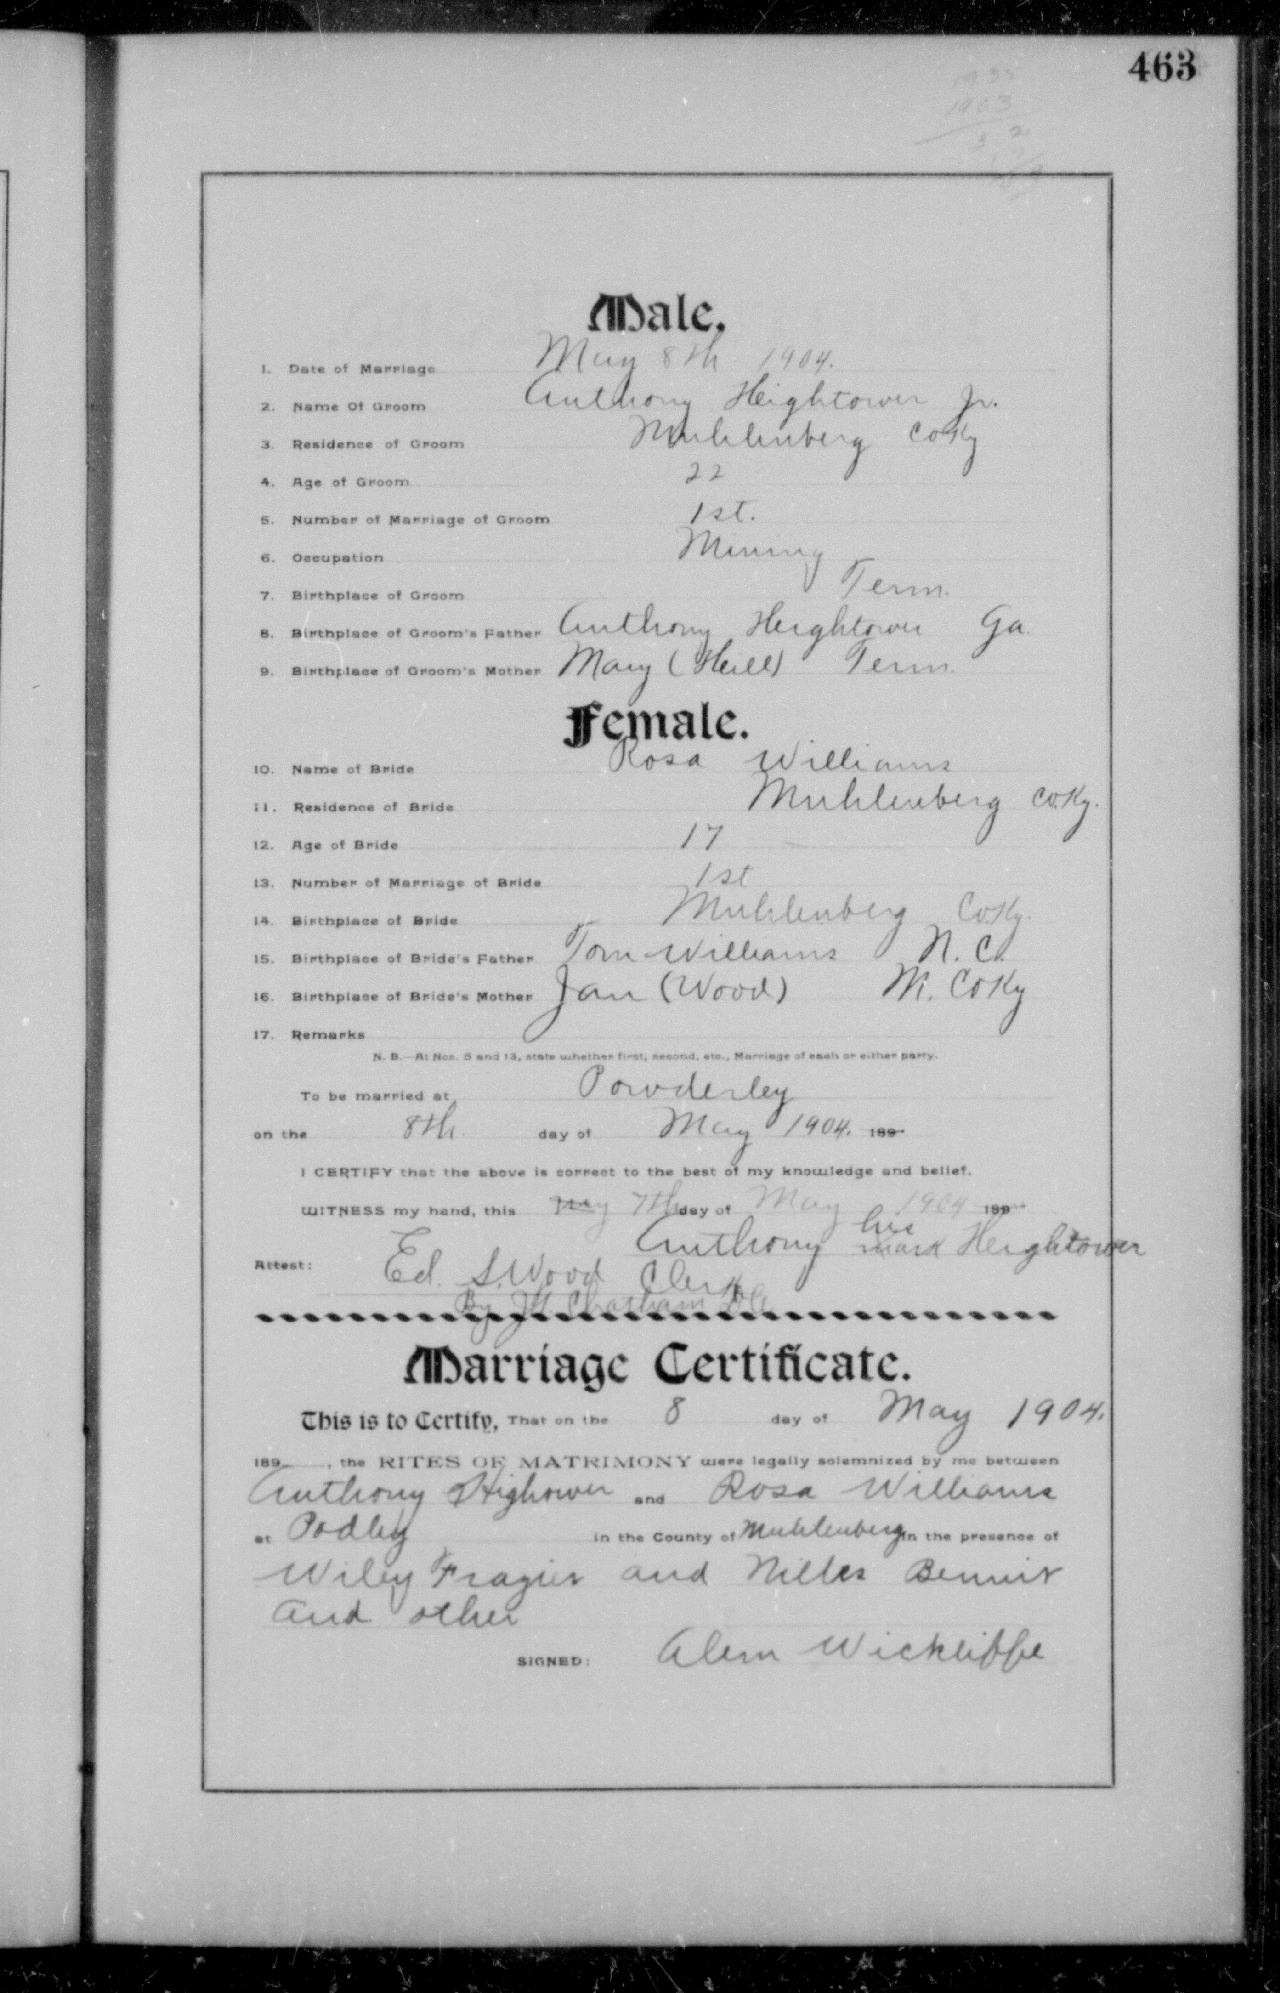 463
1935
1903
32
Male.
1. Date of Marriage May 8th 1904.
2. Name Of Groom Anthony Heightower Jr.
3. Residence of Groom Muhlenberg Co Ky
4. Age of Groom 22
5. Number of Marriage of Groom 1st.
6. Occupation Mining
7. Birthplace of Groom Tenn.
8. Birthplace of Groom's Father Anthony Heightower Ga.
9. Birthplace of Groom's Mother Mary (Heill) Tenn.
Female.
10. Name of Bride Rosa Williams
11. Residence of Bride Muhlenberg Co. Ky.
12. Age of Bride 17
13. Number of Marriage of Bride 1st
14. Birthplace of Bride Muhlenberg Co Ky.
15. Birthplace of Bride's Father Tom Williams N. C.
16. Birthplace of Bride's Mother Jan (Wood) M. Co Ky
17. Remarks
N. B.—At Nos. 5 and 13, state whether first, second, etc., Marriage of each or either party.
To be married at Powderley
on the 8th day of May 1904. 189
I CERTIFY that the above is correct to the best of my knowledge and belief.
WITNESS my hand, this May 7th day of May 1904 189
Anthony his mark Heightower
Attest: Ed. S. Wood Clerk
By J.H. Chatham D.C.
Marriage Certificate.
This is to Certify, That on the 8 day of May 1904.
189 , the RITES OF MATRIMONY were legally solemnized by me between
Anthony Highower and Rosa Williams
at Podley in the County of Muhlenberg in the presence of
Wiley Frazier and
and other
SIGNED: Alem Wickliffe